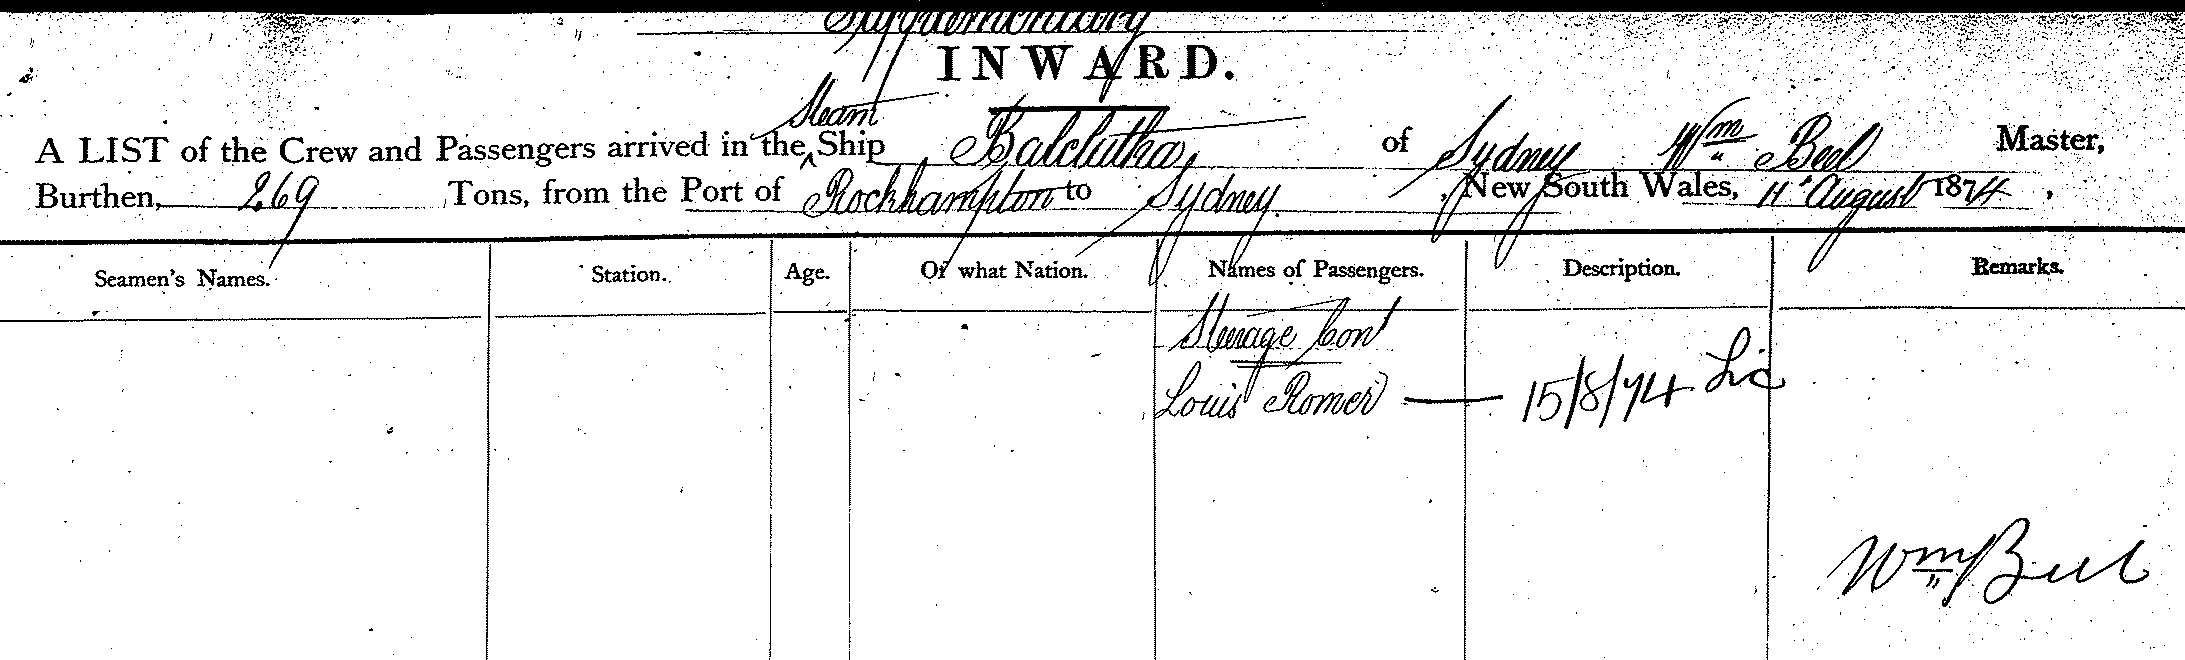 Supplementary
INWARD.
A LIST of the Crew and Passengers arrived in the ^ Steam Ship Balclutha, of Sydney Wm Beel Master,
Burthen, 269 Tons, from the Port of Rockhampton to Sydney. New South Wales, 11th August 1874,
Seamen's Names. Station. Age. Of what Nation. Names of Passengers. Description. Remarks.
Steerage Cont
Louis Romer — 15/8/74
Wm Beel